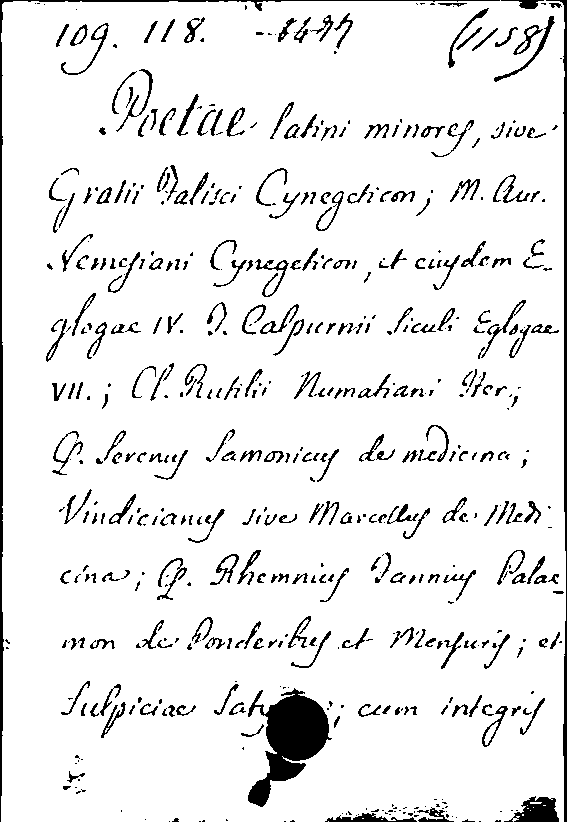 109. 118. (1158)
Poetae latini minores, sive
Gratii Falisci Cynegeticon; M. Aur.
Nemesiani Cynegeticon, et eiusdem E-
glogae IV. T. Calpurnii Siculi Eglogae
VII.; Cl. Rutilii Numatiani Iter;
Q. Serenus Samonicus de medicina;
Vindicianus sive Marcellus de Medi-
cina; Q. Rhemnius Fannius Palae-
mon de Ponderibus et Mensuris; et
Sulpiciae ; cum integris